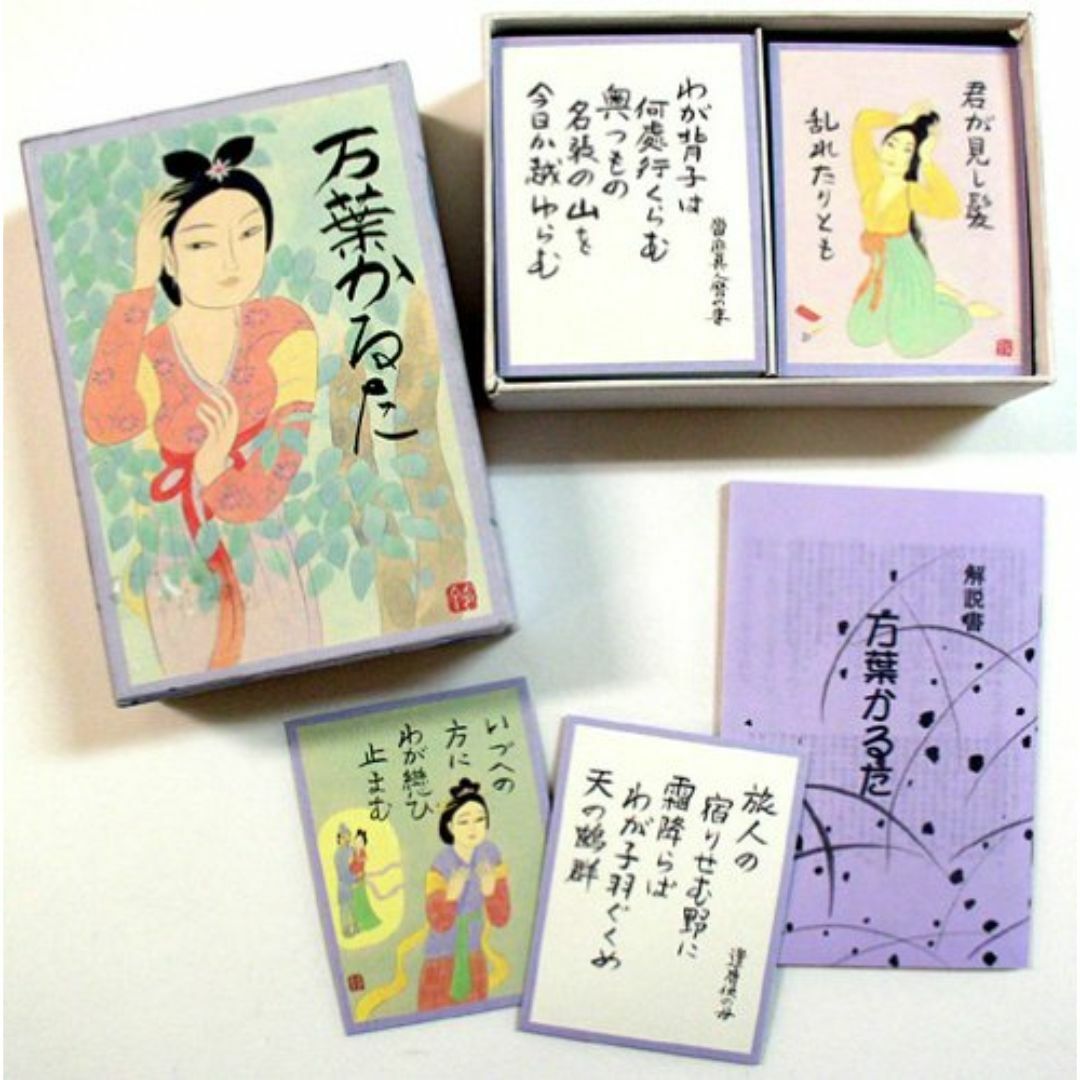 万葉かるた
わが背子は
何處行くらむ
奥つもの
名張の山を
今日か越ゆらむ
當麻真人麿の妻
君が見し髪
乱れたりとも
いづへの
方に
わが戀び
止まむ
旅人の
宿りせむ野に
霜降らば
わが子羽ぐくめ
天の鶴群
遣唐使の母
解説書
万葉かるた